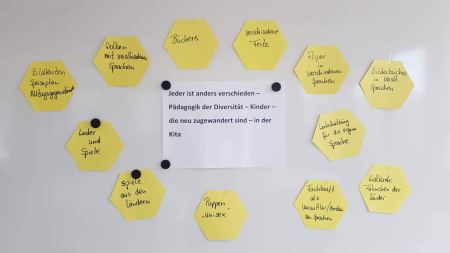 Bücher
verschiedene
Feste
Wolken
mit verschiedenen
Sprachen
Flyer
in
verschiedenen
Sprachen
Bildkarten
Speiseplan
Bilderbücher
in versch.
Sprachen
Jeder ist anders verschieden –
Pädagogik der Diversität – Kinder –
die neu zugewandert sind – in der
Kita
Lieder
und
Spiele
für die eigene
Sprache
Spiele
aus den
Ländern
Puppen
unisex
Fachkraft
als
Sprachen
Fähnchen der
Länder